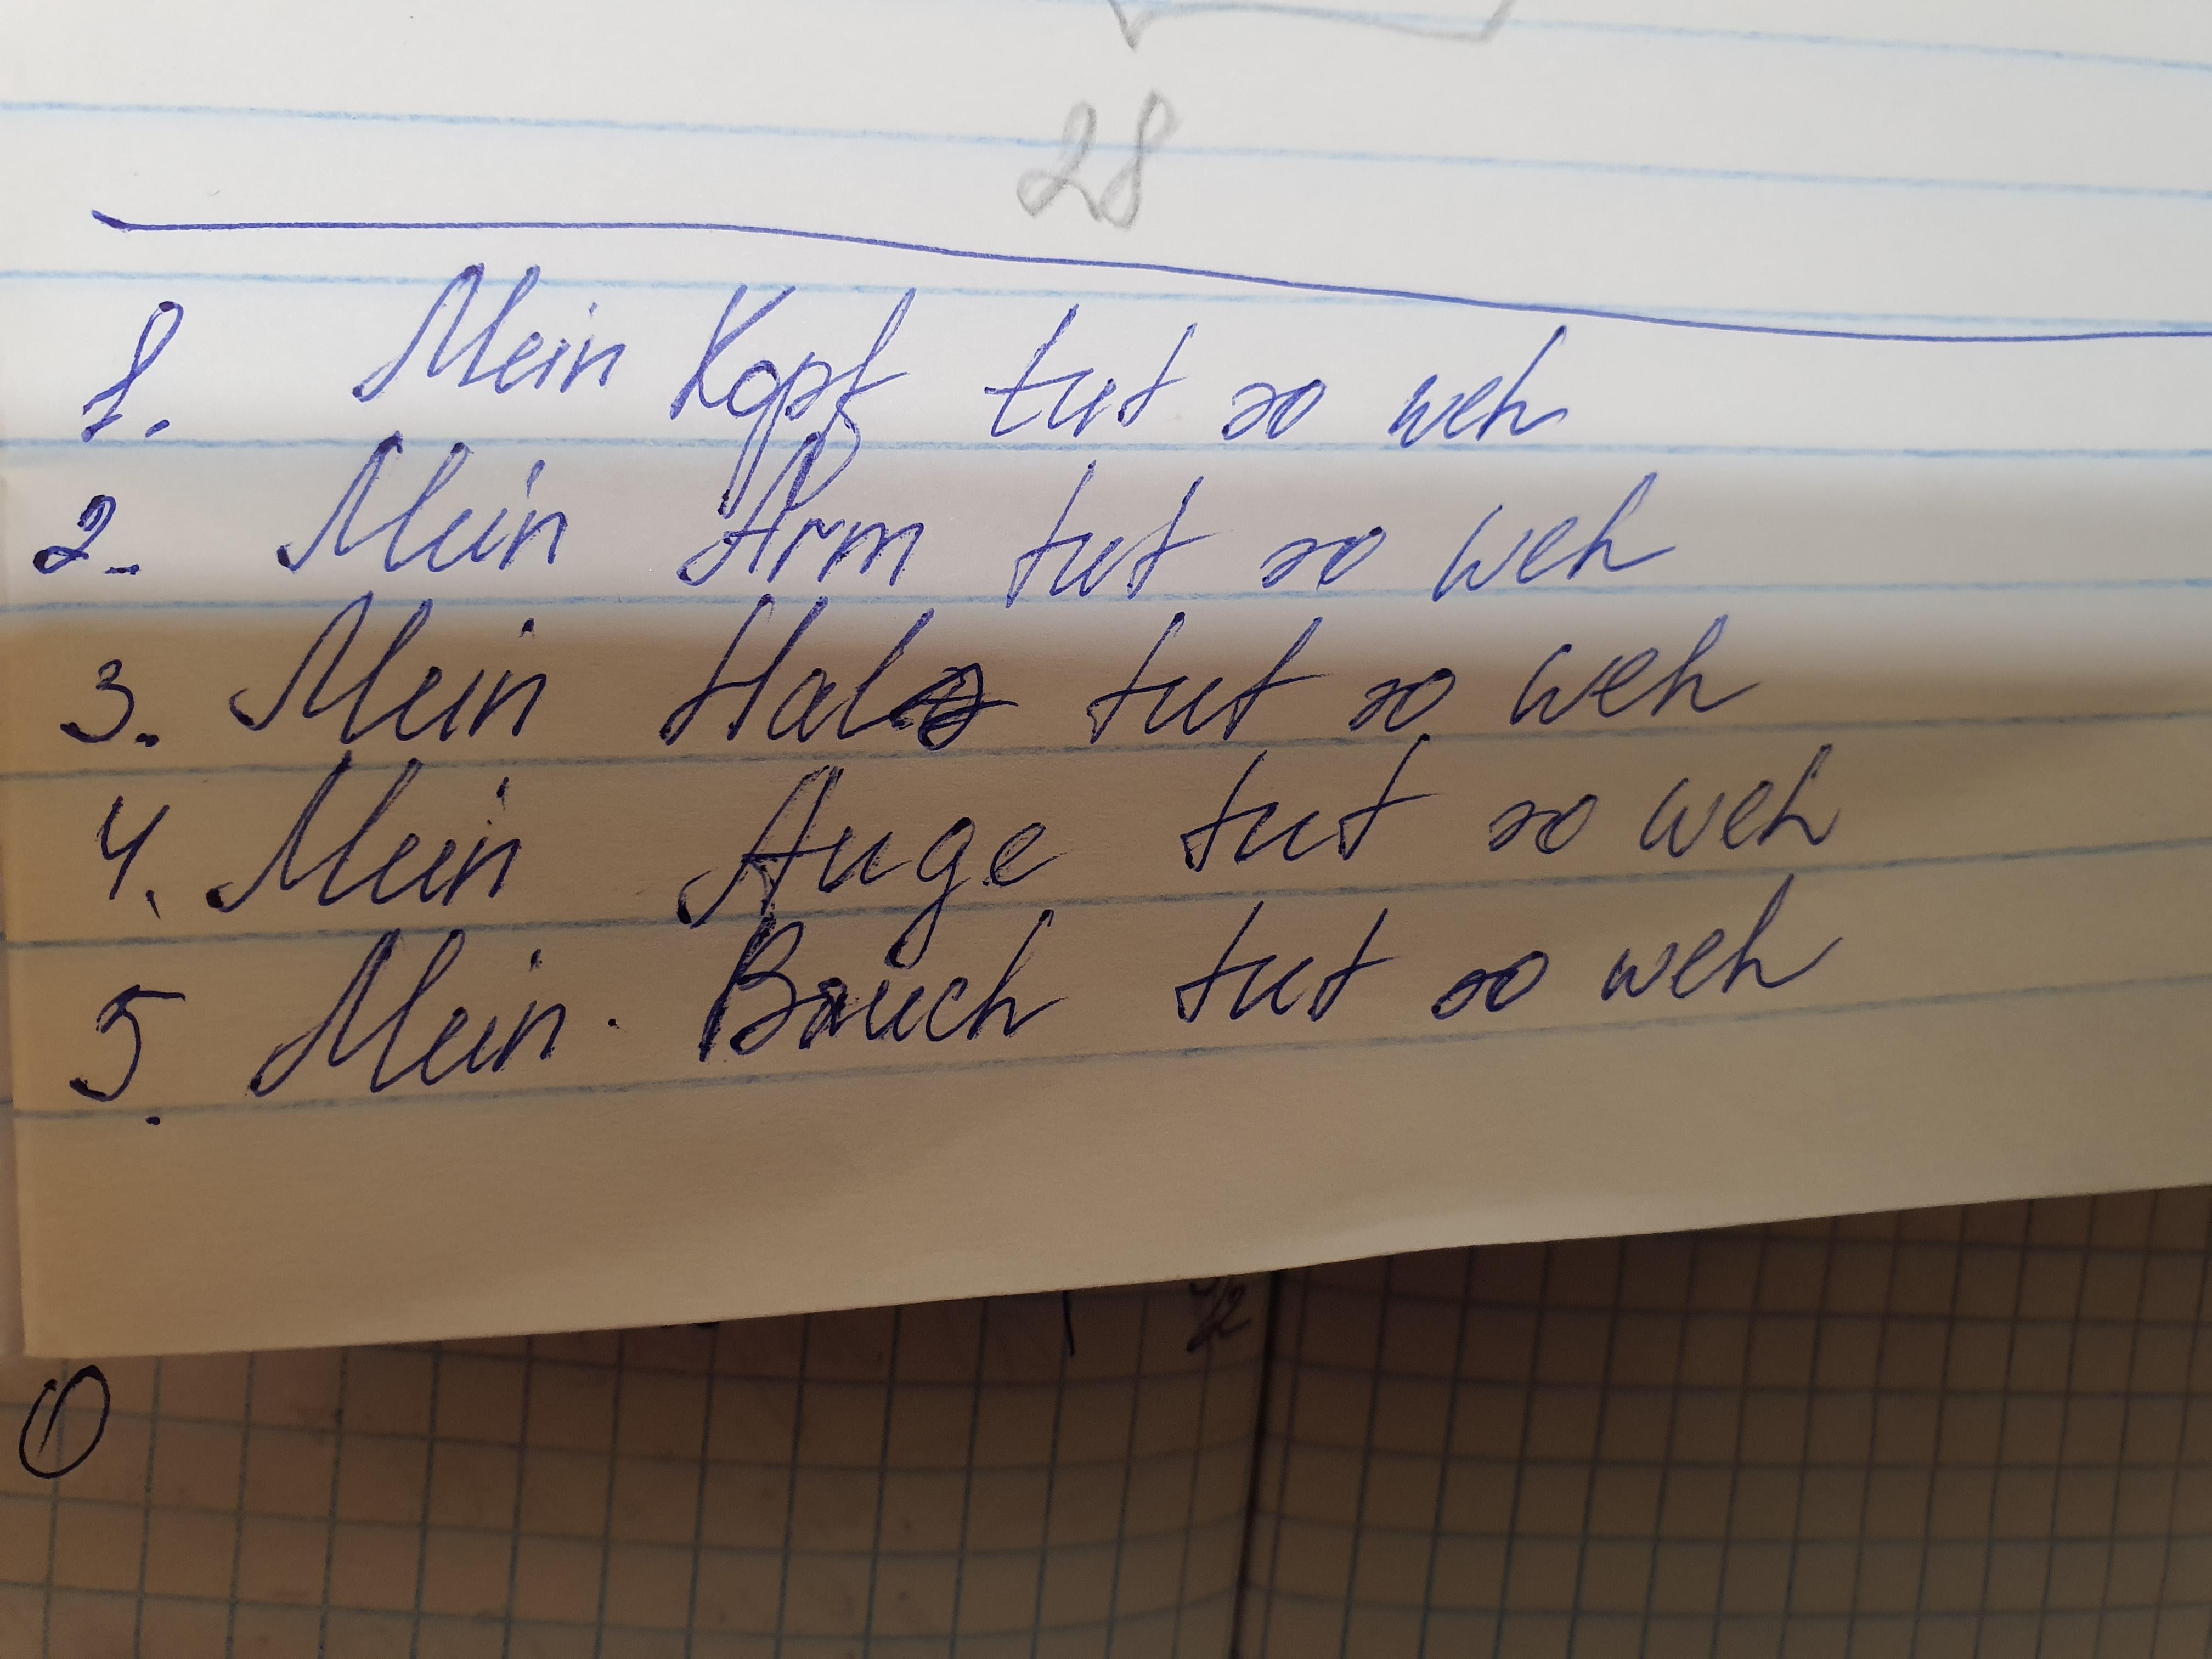 28
1. Mein Kopf tut so weh
2. Mein Arm tut so weh
3. Mein Hals tut so weh
4. Mein Auge tut so weh
5. Mein Bauch tut so weh
①